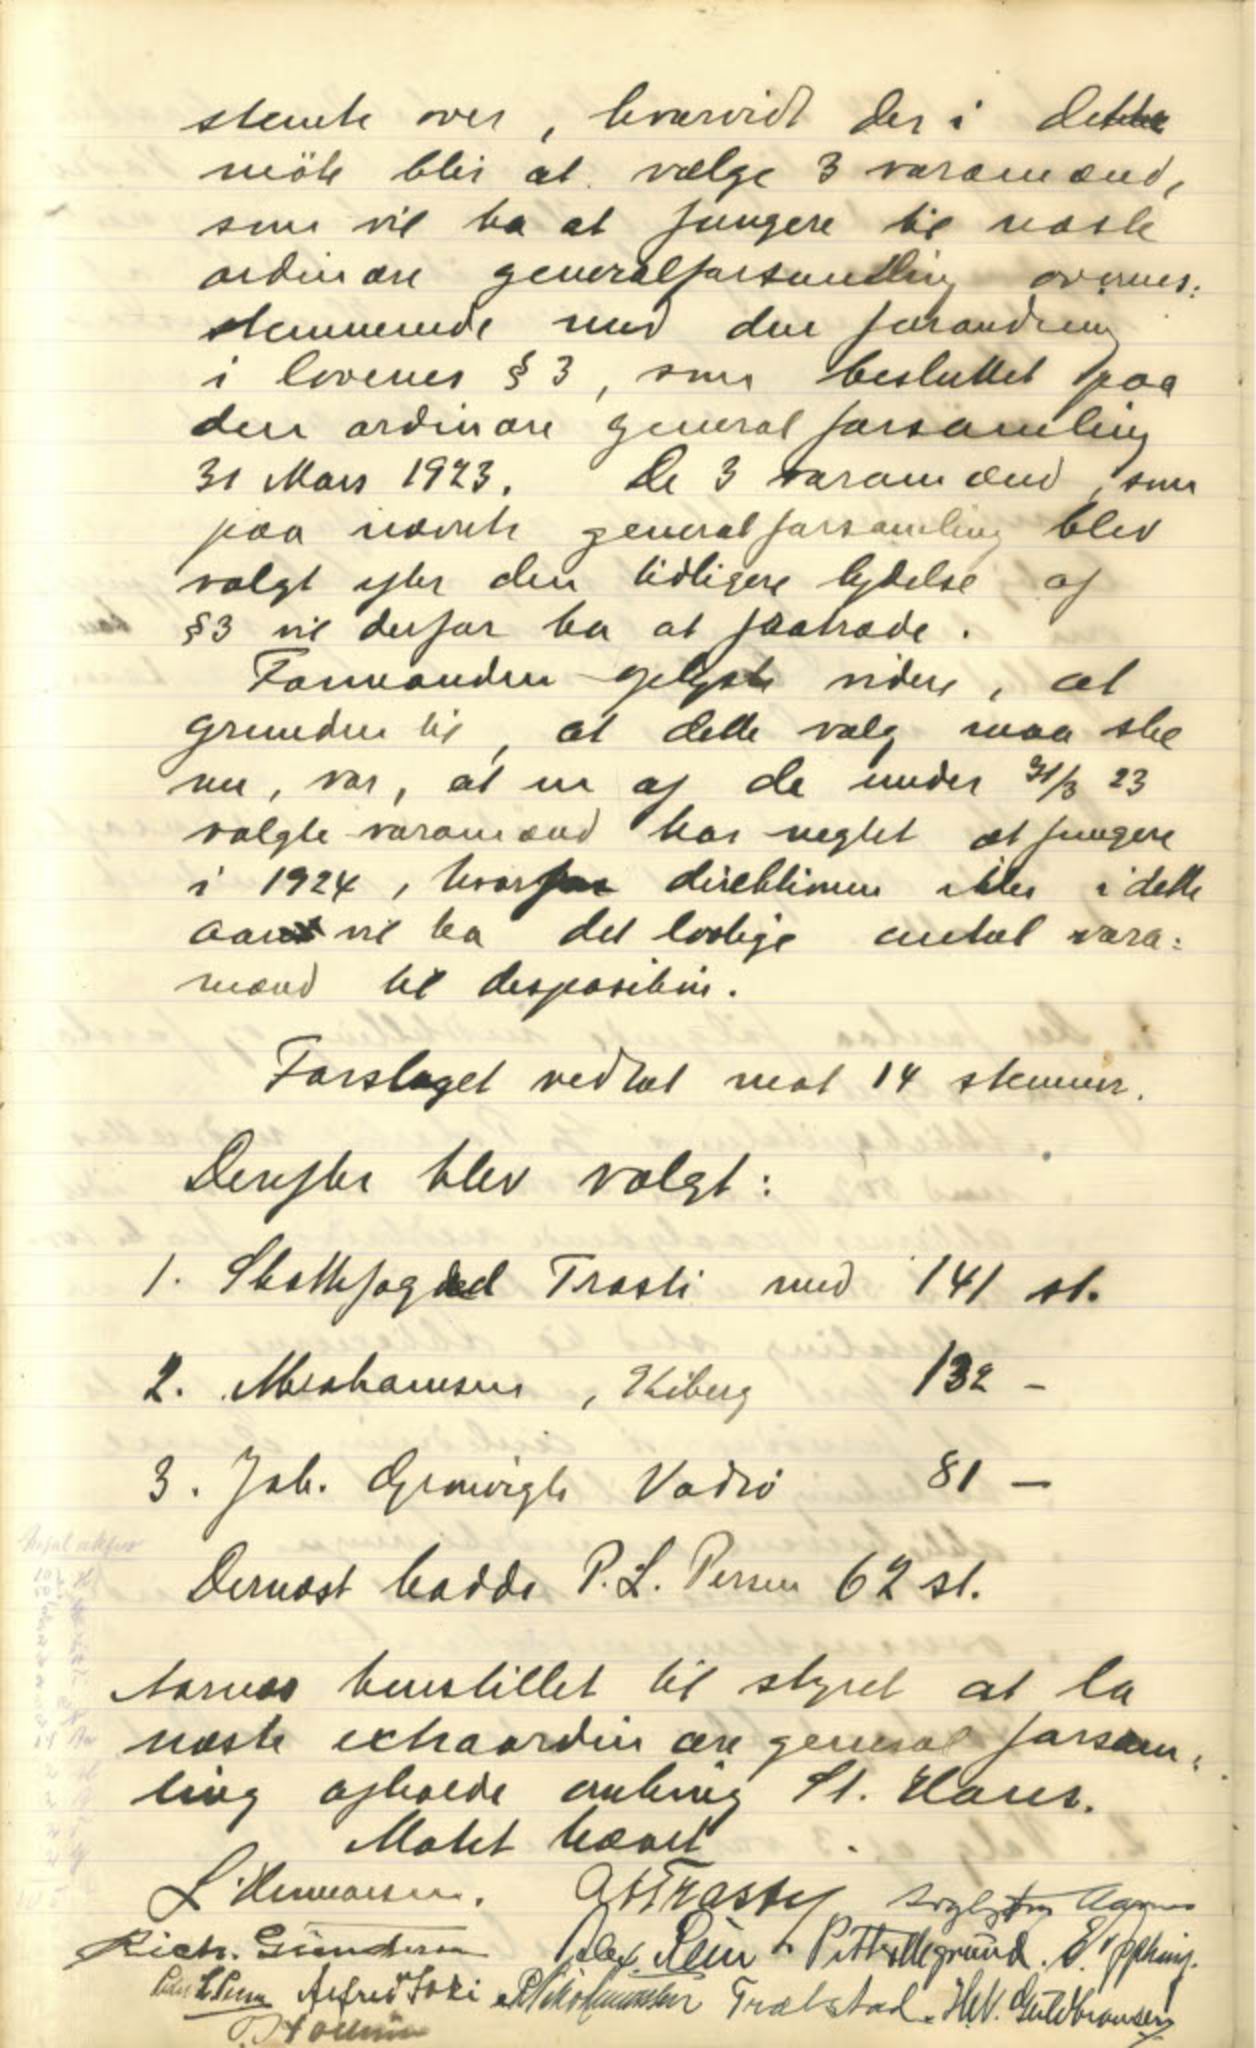 stemte over, hvorvidt der i dette
møte blir at vælge 3 varamænd,
som vil ha at fungere til næste
ordinære generalforsamling overens:
stemmende med den forandring
i lovenes § 3, som besluttet paa
den ordinære generalforsamling
31 Mars 1923. De 3 varamænd, som
paa nævnte generalforsamling blev
valgt efter den tidligere lydelse af
§3 vil derfor ha at fratræde.
Formanden oplyste videre, at
grunden til, at dette valg maa ske
nu, var, at en af de under 31/3 23
valgte varamænd har negtet at fungere
i 1924, hvorfor direktionen ikke i dette
aar vil ha det lovlige antal vara:
mænd til desposition.
Forslaget vedtat mot 14 stemmer.
Derefter blev valgt:
1. Skattefogded Trasti med 141 st.
2. Abrahamsen, Kiberg 132 -
3. Joh. Grønvigh Vadsö 81 -
Dernæst hadde P. L. Persen 62 st.
Aarnes henstillet til styret at la
næste extraordinære generalforsam:
ling afholde omkring St. Hans.
Møtet hævet
L. Hermansen. Trasty Aarnes
Rich. Gundersen Alex. Rein
Alfred Trætstad. H.V. Guldbransen